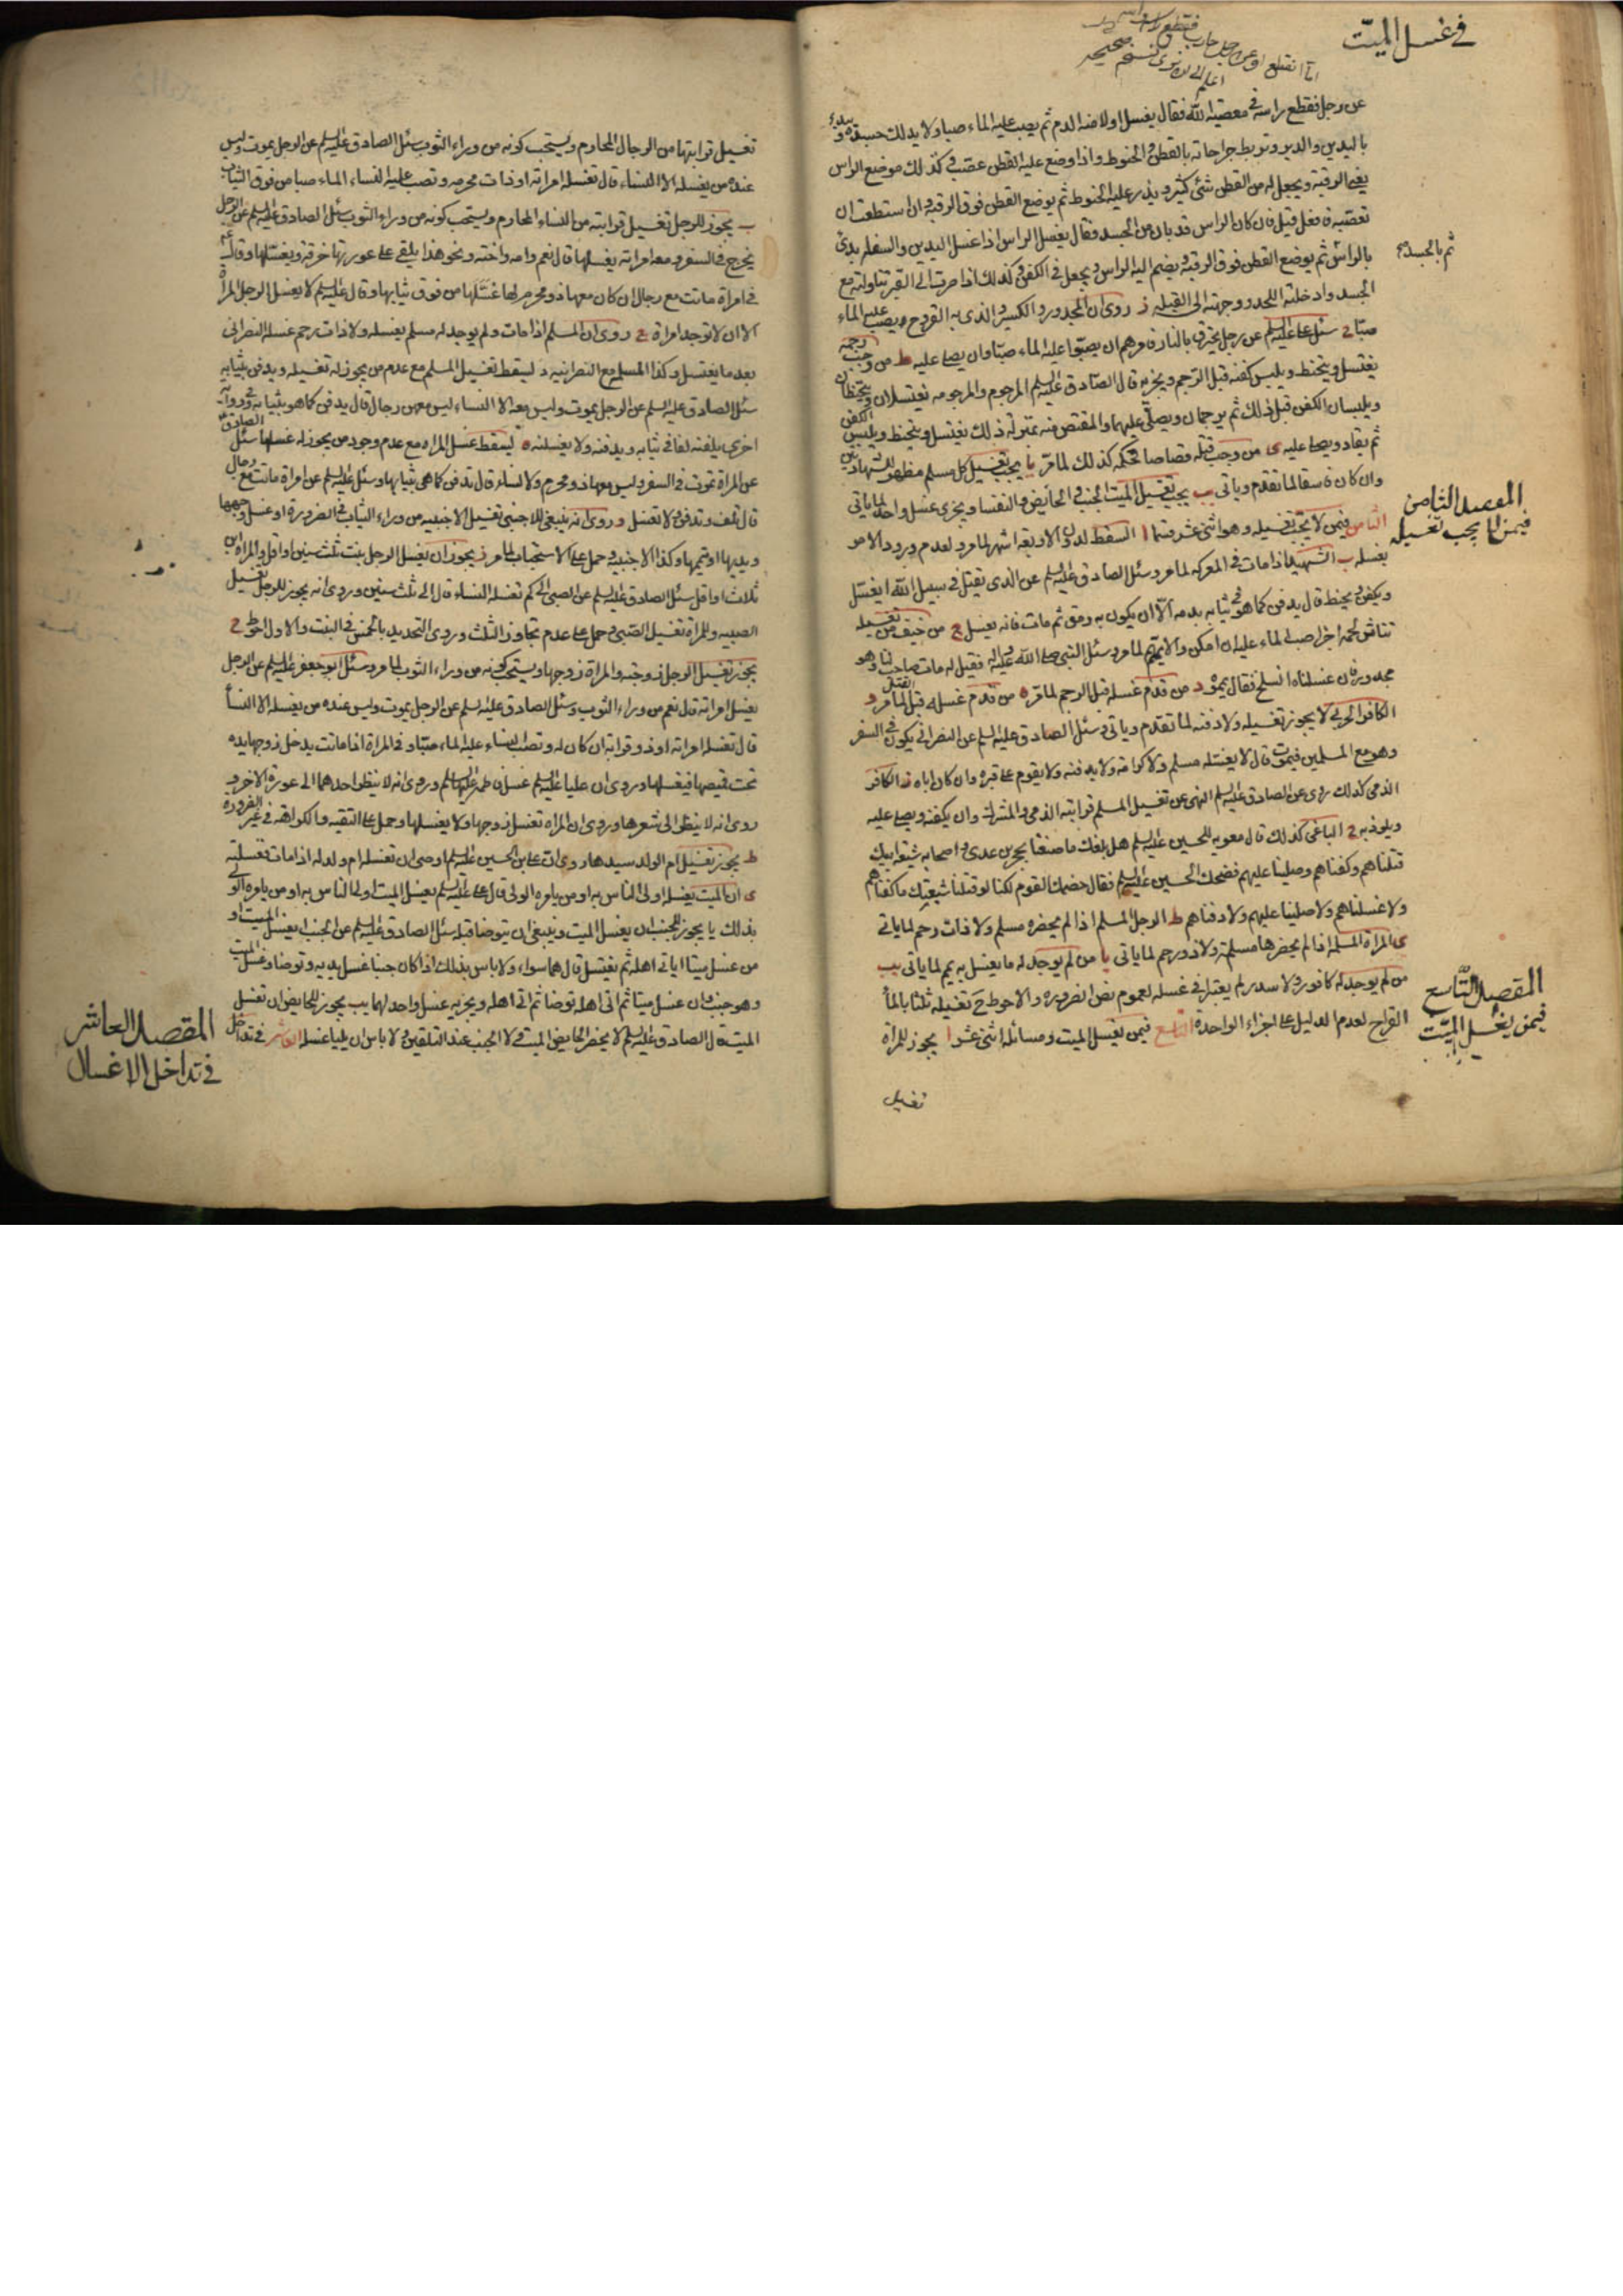 في غسل الميّت
عن رجل فقطع راسه في معصية الله فقال يغسل اولا منه الدم ثم يصب عليه الماء صبا ولا يدلك جسده ويبدء
باليدين والدبر وتربط جراحاته بالقطن والحنوط واذا وضع عليه القطن عصب وكذلك موضع الراس
يعني الرقبة ويجعل له من القطن شئ كثير ويذر عليه الحنوط ثم يوضع القطن فوق الرقبة وان استطعت ان
تعصبه فافعل قيل فان كان الراس قد بان من الجسد فقال يغسل الراس اذا غسل اليدين والسفله بدئ
بالراس ثم يوضع القطن فوق الرقبة ويضم اليه الراس ويجعل في الكفن وكذلك اذا صرت الى القبر تناولته مع
ثم بالجسد
الجسد وادخلته اللحد ووجهته الى القبلة ز روى ان المجدور والكسير والذي به القروح يصب عليه الماء
صبا ح سئل علي عليه السلم عن رجل يحترق بالنار فامرهم ان يصبوا عليه الماء صبّا وان يصلى عليه ط من وجب رجمه
يغتسل ويتحنط ويلبس كفنه قبل الرجم ويجزيه قال الصّادق عليه السلم المرجوم والمرجومه يغتسلان ويتحنطان
ويلبسان الكفن قبل ذلك ثم يرجمان ويصلّى عليهما والمقتص منه بمنزلة ذلك يغتسل ويتحنط ويلبس الكفن
ثم يقاد ويصلى عليه ى من وجب قتله قصاصا حكمه كذلك لما مرّ يا يجب تغسيل كل مسلم مظهر للشهادتين
وان كان فاسقا لما تقدم وياتى يب يجب تغسيل الميت الجنب والحايض والنفسا ويجزى غسل واحد لما ياتي
المقصد الثامن
فيمن لا يجب تغسيله
الثامن فيمن لا يجب تغسيله وهو اثنى عشر قسما ا السقط لدون الاربعه اشهر لما مر ولعدم ورود الامر
بغسله ب الشهيد اذا مات في المعركه لما مر وسئل الصادق عليه السلم عن الذى يقتل في سبيل الله ايغسّل
ويكفن ويحنط قال يدفن كما هو في ثيابه بدمه الّا ان يكون به رمق ثم مات فانه يغسل ج من خيف من تغسيله
تناثر لحمه اجزا صب الماء عليه ان امكن والا يتيمم لما مر وسئل النبي صلى الله عليه واله فقيل له مات صاحب لنا وهو
مجدور فان غسلناه انسلخ فقال يمّموه د من قدم غسله قبل الرجم لما مرّ ه من قدم غسله قبل القتل لما مر و
الكافر الحربي لا يجوز تغسيله ولا دفنه لما تقدم وياتي وسئل الصادق عليه السلم عن النصراني يكون في السفر
وهو مع المسلمين فيموت قال لا يغسّله مسلم ولا كرامة ولا يدفنه ولا يقوم على قبره وان كان اباه ز الكافر
الذمي كذلك روى عن الصادق عليه السلم النهى عن تغسيل المسلم قرابته الذمي والمشرك وان يكفنه ويصلي عليه
ويلوذ به ح الباغي كذلك قال معويه للحسين عليه السلم هل بلغك ما صنعنا بحجر بن عدى واصحابه شيعة ابيك
قتلناهم وكفناهم وصلينا عليهم فضحك الحسين عليه السلم فقال خصمك القوم لكنا لو قتلنا شيعتك ما كفناهم
ولا غسلناهم ولا صلينا عليهم ولا دفناهم ط الرجل المسلم اذا لم يحضره مسلم ولا ذات رحم لما ياتي
ى المراة المسلمه اذا لم يحضرها مسلمة ولا ذو رحم لما ياتي يا من لم يوجد له ما يغسل به ييمم لما ياتي يب
من لم يوجد له كافور ولا سدر لم يعتبر في غسله لعموم نص الضروره والاحوط ح تغسيله ثلثا بالماء
المقصد التّاسع
فيمن يغسل الميّت
القراح لعدم الدليل على اجزاء الواحدة التاسع فيمن يغسل الميت ومسائله اثنى عشر ا يجوز للمراة
تغسيل
تغسيل قرابتها من الرجال المحارم ويستحب كونه من وراء الثوب سئل الصادق عليه السلم عن الرجل يموت وليس
عنده من يغسله الا النساء قال تغسله امراته او ذات محرمه وتصب عليه النساء الماء صبا من فوق الثياب
ب يجوز للرجل تغسيل قرابته من النساء المحارم ويستحب كونه من وراء الثوب سئل الصادق عليه السلم عن الرجل
يخرج في السفر ومعه امراته يغسلها قال نعم وامه واخته ونحو هذا يلقى على عورتها خرقة ويغسّلها وقال
في امراة ماتت مع رجال ان كان معها ذو محرم لها غسّلها من فوق ثيابها وقال عليه السلم لا يغسل الرجل المراة
الا ان لا توجد امراة ج روى ان المسلم اذا مات ولم يوجد له مسلم يغسله ولا ذات رحم غسله النصرانى
بعد ما يغتسل وكذا المسلمه مع النصرانيه د يسقط تغسيل المسلم مع عدم من يجوز له تغسيله ويدفن بثيابه
سئل الصادق عليه السلم عن الرجل يموت وليس معه الا النساء ليس معهن رجال قال يدفن كما هو بثيابه وفي رواية
اخرى يلفنه لفا في ثيابه ويدفنه ولا يغسلنه ه يسقط غسل المراه مع عدم وجود من يجوز له غسلها سئل الصادق
عن المراة تموت في السفر وليس معها ذو محرم ولا نساء قال تدفن كما هى بثيابها وسئل عليه السلم عن امراة ماتت مع رجال
قال تلف وتدفن ولا تغسل و روى انه ينبغي للاجنبي تغسيل الاجنبيه من وراء الثياب في الضرورة او غسل وجهها
ويديها او تيممها وكذا الاجنبية وحمل على الاستحباب لما مر ز يجوز ان يغسل الرجل بنت ثلث سنين او اقل والمراة ابن
ثلاث او اقل سئل الصادق عليه السلم عن الصبي الى كم تغسله النساء قال الى ثلث سنين وروى انه يجوز للرجل تغسيل
الصبيه وللمراة تغسيل الصّبي وحمل على عدم تجاوز الثلث وروى التحديد بالخمس في البنت والاول احوط ح
يجوز تغسيل الرجل زوجته والمراة زوجها ويستحب كونه من وراء الثوب لما مر وسئل ابو جعفر عليه السلم عن الرجل
يغسل امراته قال نعم من وراء الثوب وسئل الصادق عليه السلم عن الرجل يموت وليس عنده من يغسله الا النسأ
قال تغسله امراته او ذو قرابة ان كان له وتصب النساء عليه الماء صبّا وفي المراة اذا ماتت يدخل زوجها يده
تحت قميصها فيغسلها وروى ان عليا عليه السلم غسل فاطمه عليها السلم وروى انه لا ينظر احدهما الى عورة الاخر و
روى انه لا ينظر الى شعرها وروى ان المراه تغسل زوجها ولا يغسلها وحمل على التقيه والكراهة في غير الضروره
ط يجوز تغسيل ام الولد سيدها روى ان علي بن الحسين عليه السلم اوصى ان تغسله ام ولد له اذا مات فغسلته
ى ان الميت يغسله اولى الناس به او من يامره الولى قال علي عليه السلم يغسل الميت اولى الناس به او من يامره الولي
بذلك يا يجوز للجنب ان يغسل الميت وينبغي ان يتوضا قبله سئل الصادق عليه السلم عن الجنب ايغسل الميت او
من غسل ميتا اياتى اهله ثم يغتسل قال هما سواء ولا باس بذلك اذا كان جنبا غسل يديه وتوضا وغسل الميت
وهو جنب وان غسل ميتا ثم اتى اهله توضا ثم اتى اهله ويجزيه غسل واحد لهما يب يجوز للحايض ان تغسل
الميت قال الصادق عليه السلم لا يحضر الحايض الميت ولا الجنب عند التلقين ولا باس ان يليا غسله العاشر في تداخل
المقصد العاشر
في تداخل الاغسال